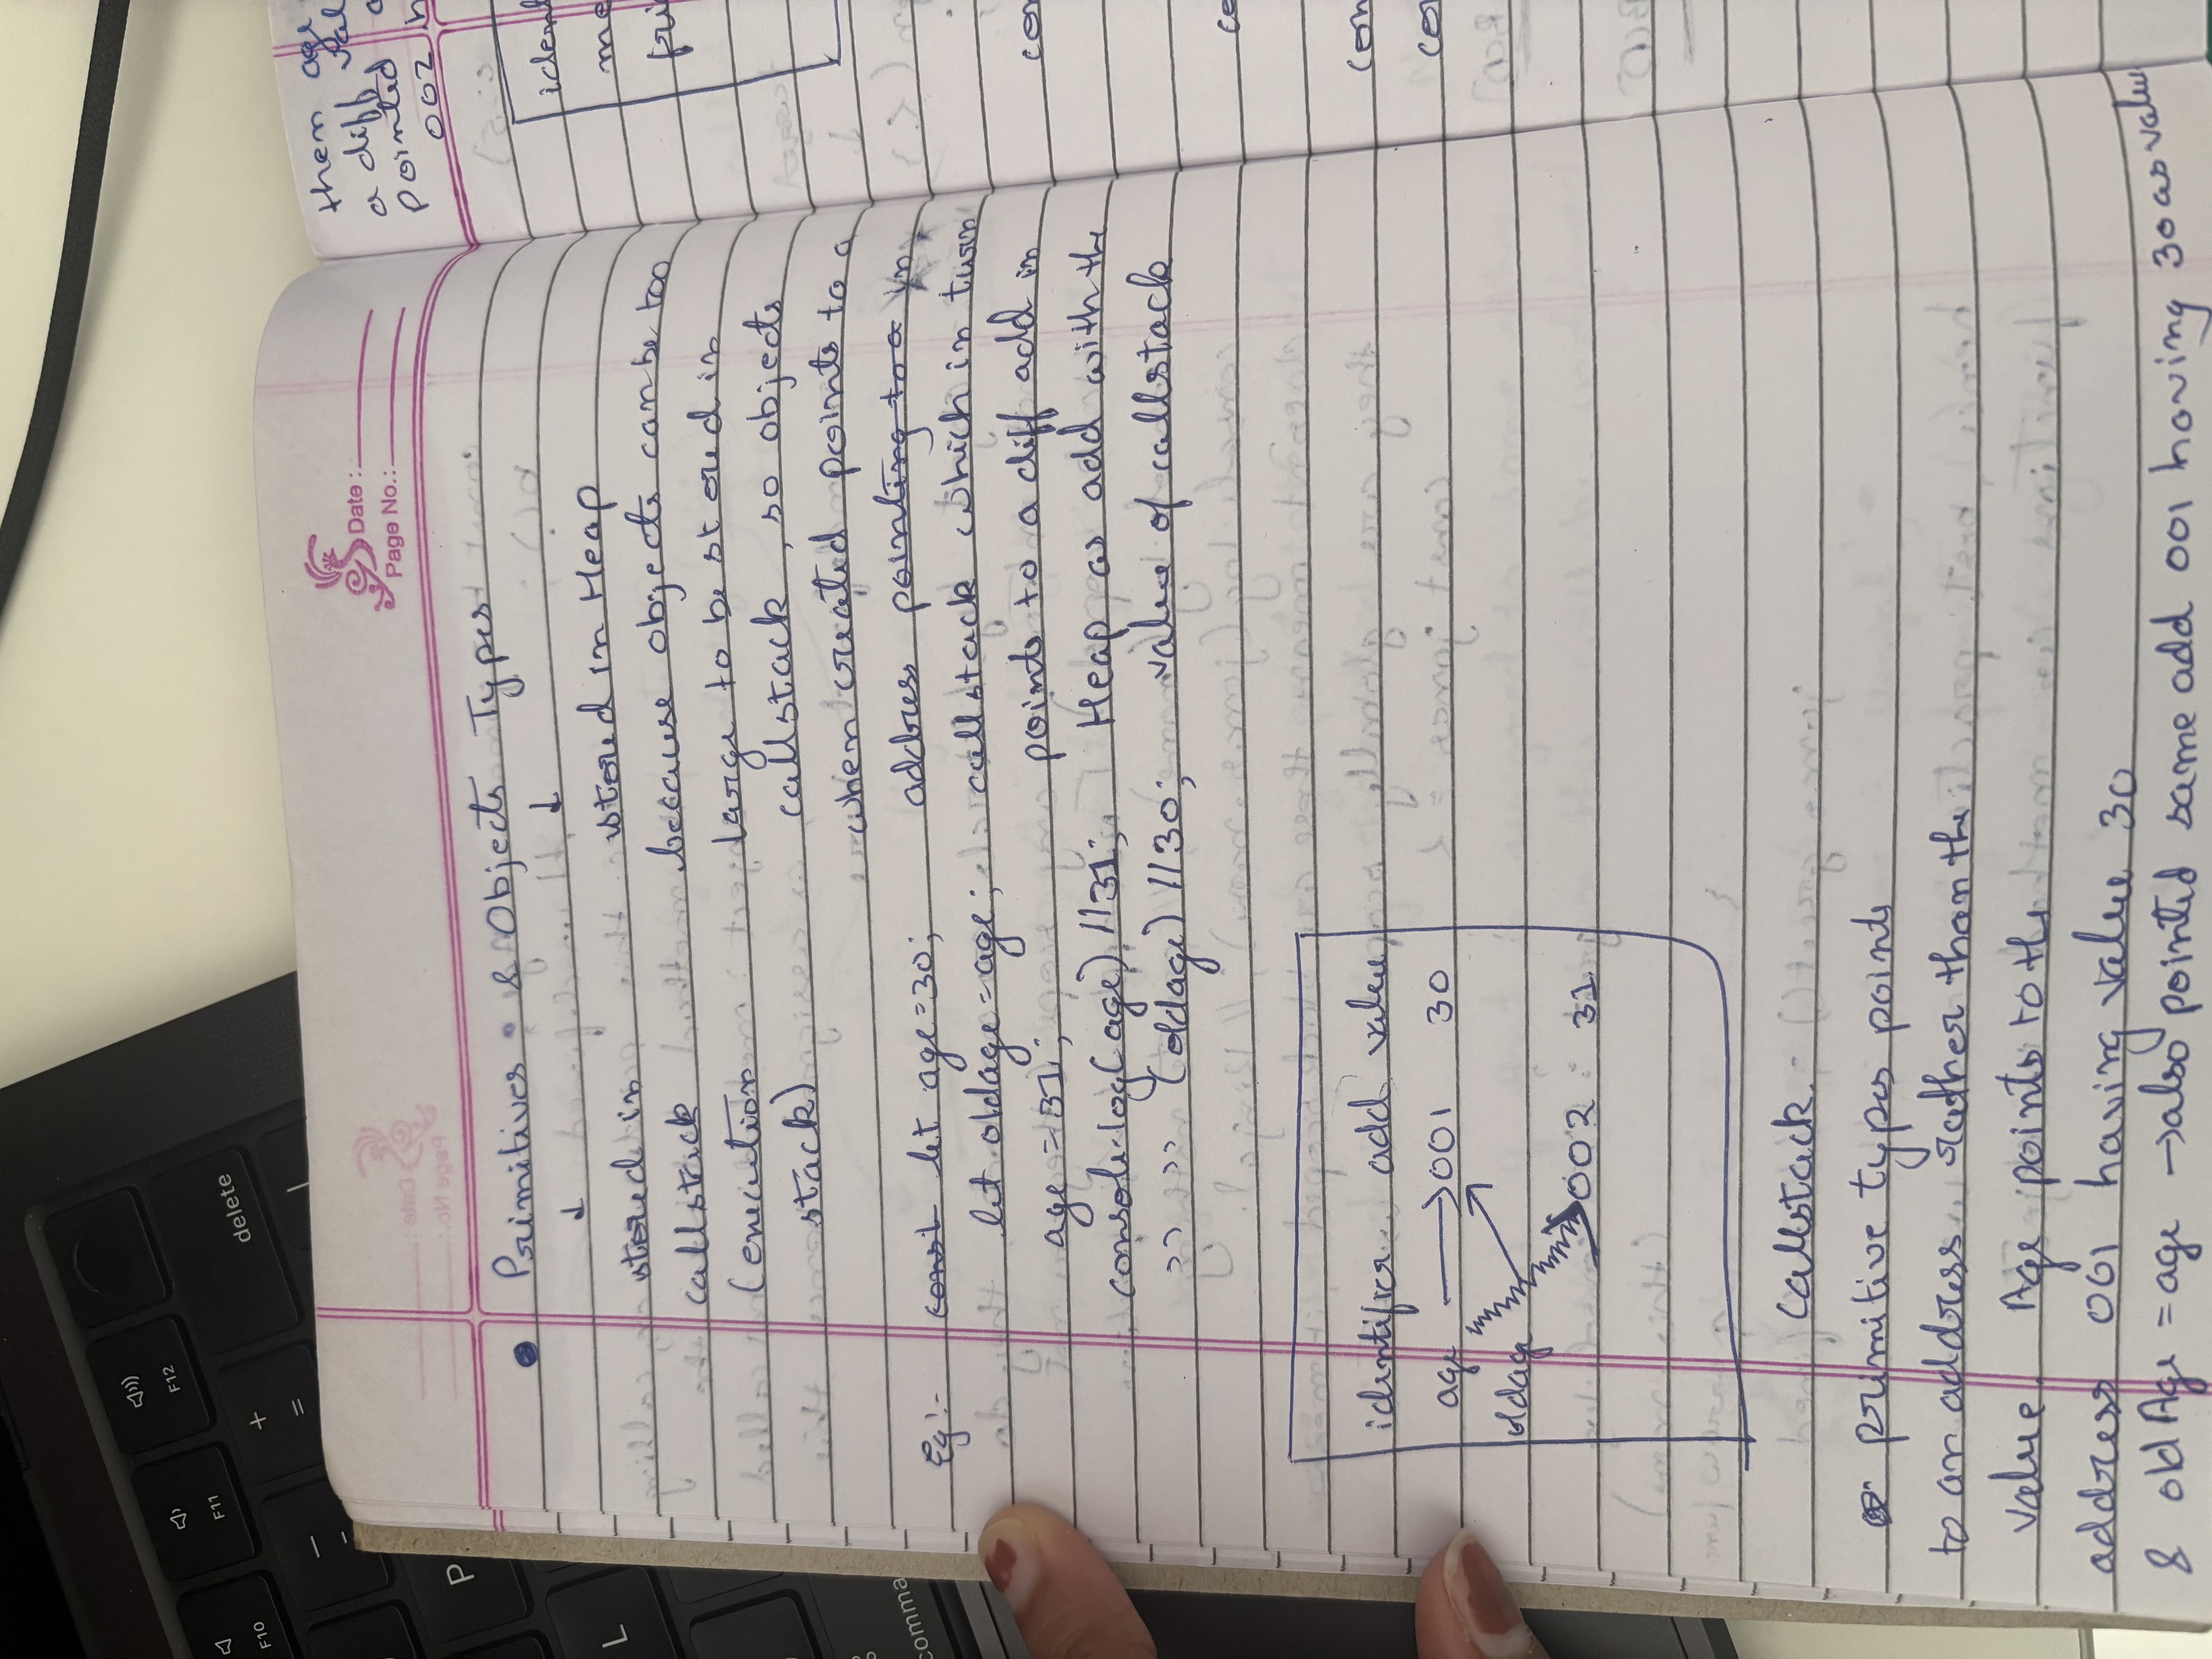 F10
F11
F12
delete
+
=
P
L
comma
Date :
Page No.:
Primitives & Objects Types
↓ ↓
stored in
callstack
(execution
stack)
stored in Heap
because objects can be too
large to be stored in
callstack, so objects
when created points to a
address pointing to a in
callstack which in turn
points to a diff add in
Heap as add with the
value of callstack
Eg:- const let age=30;
let oldage=age;
age=31;
console.log(age) //31;
" " (oldage) //30;
identifier add value
age → 001 30
oldage
002 31
Callstack.
primitive types points
to an address rather than the
value. Age points to the
address 001 having value 30
& oldAge = age → also pointed same add 001 having 30 as value
them age
a diff val
pointed
002
iden
me
fri
con
co
con
con